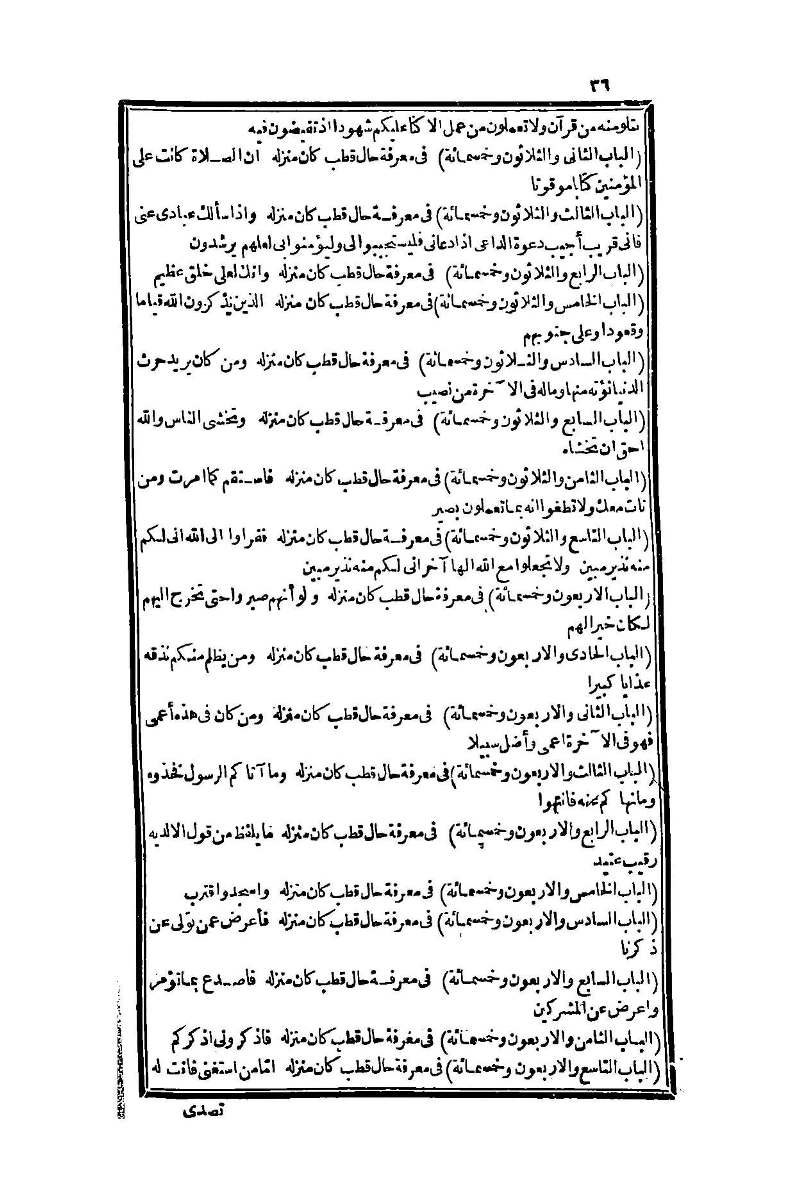 ٣٦
تتلو منه من قرآن ولا تعملون من عمل الا كنا عليكم شهودا اذ تفيضون فيه
(الباب الثانى والثلاثون وخمسمائة) فى معرفة حال قطب كان منزله ان الصلاة كانت على
المؤمنين كتابا موقوتا
(الباب الثالث والثلاثون وخمسمائة) فى معرفة حال قطب كان منزله واذا سألك عبادى عنى
فانى قريب أجيب دعوة الداعى اذا دعانى فليستجيبوا لى وليؤمنوا بى لعلهم يرشدون
(الباب الرابع والثلاثون وخمسمائة) فى معرفة حال قطب كان منزله وانك لعلى خلق عظيم
(الباب الخامس والثلاثون وخمسمائة) فى معرفة حال قطب كان منزله الذين يذكرون الله قياما
وقعودا وعلى جنوبهم
(الباب السادس والثلاثون وخمسمائة) فى معرفة حال قطب كان منزله ومن كان يريد حرث
الدنيا نؤته منها وماله فى الآخرة من نصيب
(الباب السابع والثلاثون وخمسمائة) فى معرفة حال قطب كان منزله وتخشى الناس والله
احق ان تخشاه
(الباب الثامن والثلاثون وخمسمائة) فى معرفة حال قطب كان منزله فاستقم كما امرت ومن
تاب معك ولا تطغوا انه بما تعملون بصير
(الباب التاسع والثلاثون وخمسمائة) فى معرفة حال قطب كان منزله ففروا الى الله انى لكم
منه نذير مبين ولا تجعلوا مع الله الها آخر انى لكم منه نذير مبين
(الباب الاربعون وخمسمائة) فى معرفة حال قطب كان منزله ولو أنهم صبروا حتى تخرج اليهم
لكان خيرا لهم
(الباب الحادى والاربعون وخمسمائة) فى معرفة حال قطب كان منزله ومن يظلم منكم نذقه
عذابا كبيرا
(الباب الثانى والاربعون وخمسمائة) فى معرفة حال قطب كان منزله ومن كان فى هذه أعمى
فهو فى الآخرة اعمى وأضل سبيلا
(الباب الثالث والاربعون وخمسمائة) فى معرفة حال قطب كان منزله وما آتا كم الرسول فخذوه
وما نها كم عنه فانتهوا
(الباب الرابع والاربعون وخمسمائة) فى معرفة حال قطب كان منزله ما يلفظ من قول الا لديه
رقيب عتيد
(الباب الخامس والاربعون وخمسمائة) فى معرفة حال قطب كان منزله واسجد واقترب
(الباب السادس والاربعون وخمسمائة) فى معرفة حال قطب كان منزله فأعرض عمن تولى عن
ذكرنا
(الباب السابع والاربعون وخمسمائة) فى معرفة حال قطب كان منزله فاصدع بما تؤمر
واعرض عن المشركين
(الباب الثامن والاربعون وخمسمائة) فى معرفة حال قطب كان منزله فاذكرونى اذكركم
(الباب التاسع والاربعون وخمسمائة) فى معرفة حال قطب كان منزله امّا من استغنى فانت له
تصدى